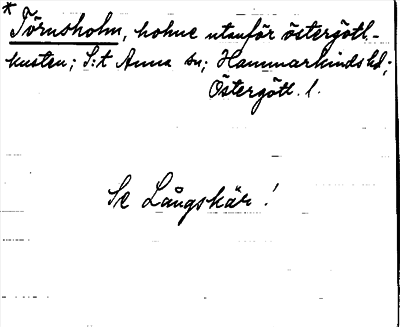 * Törnsholm, holme utanför östergötl.-
kusten; S:t Anna sn; Hammarkinds hd;
Östergötl. l.
Se Långskär!